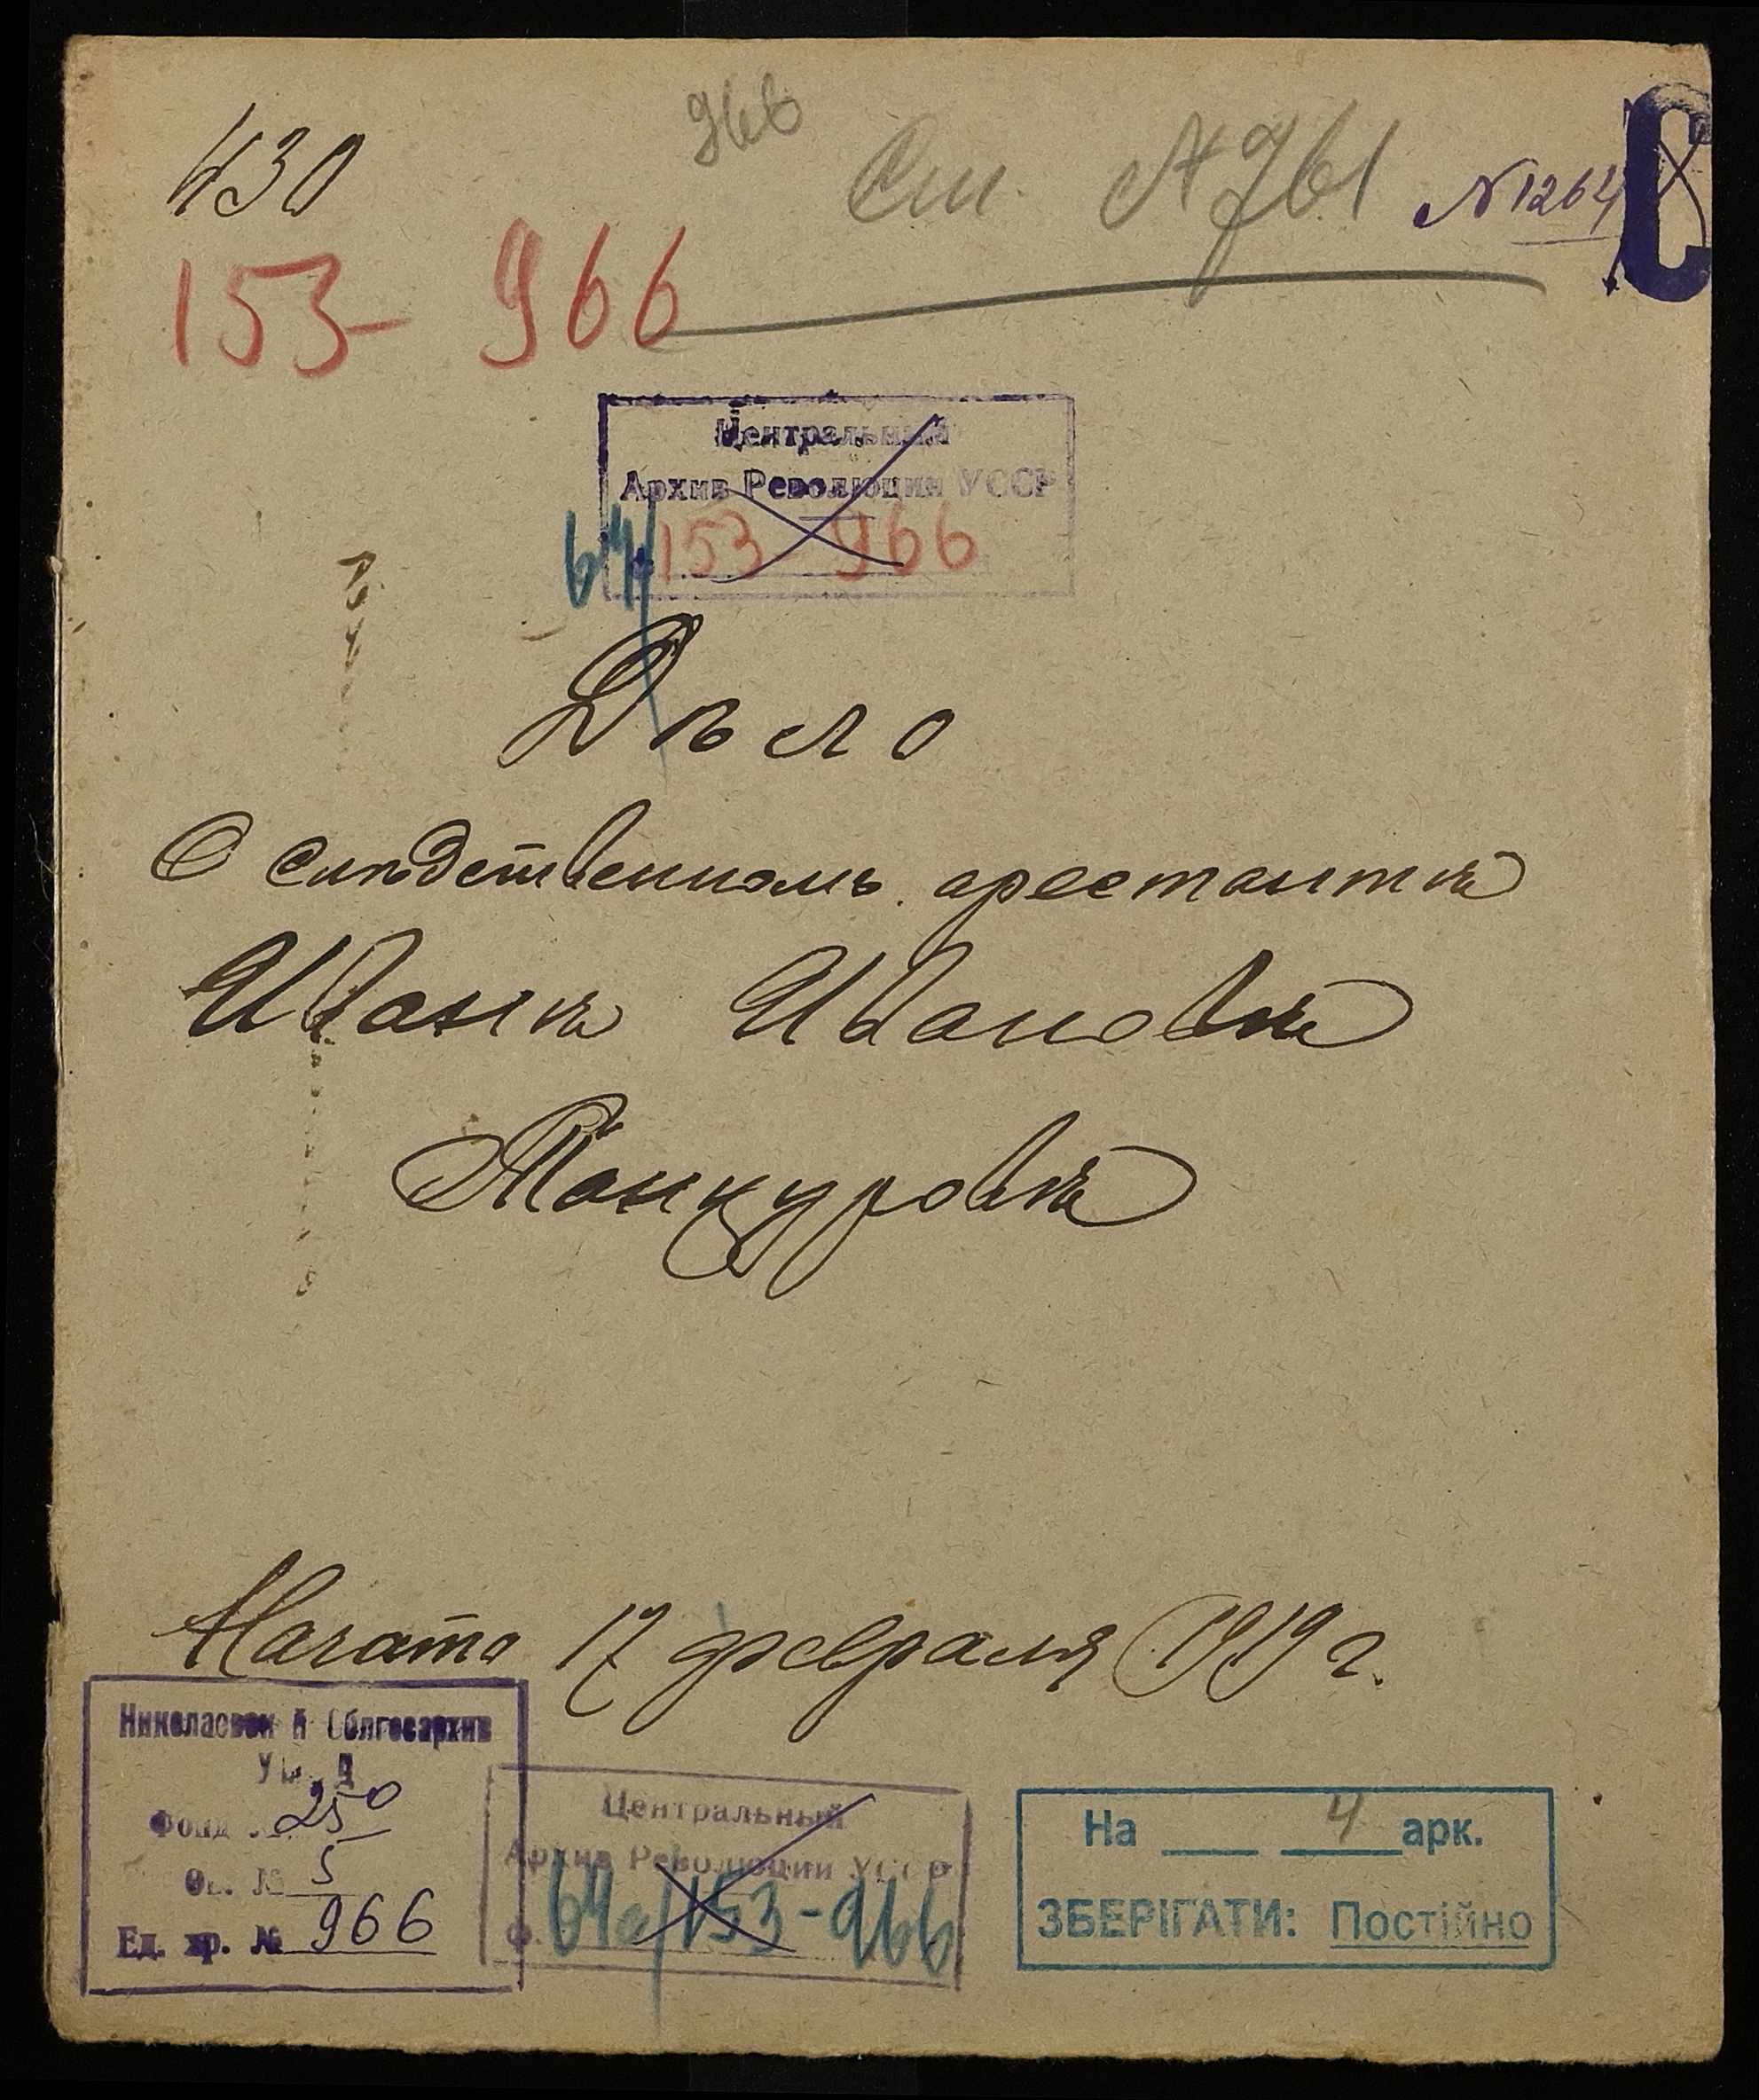 966
430
Ст. № 761
№ 1264
С
153 - 966
Центральный
Архив Революции УССР
64/153 966
Дѣло
О слѣдственномъ арестантѣ
Иванѣ Ивановѣ
Манжуровѣ
Начато 17 февраля 1919 г.
Николаевский Облгосархив
Фонд № 250
Оп. № 5
Ед. хр. № 966
Центральный
Архив Революции УССР
Ф. 64а/153-966
На 4 арк.
ЗБЕРІГАТИ: Постійно